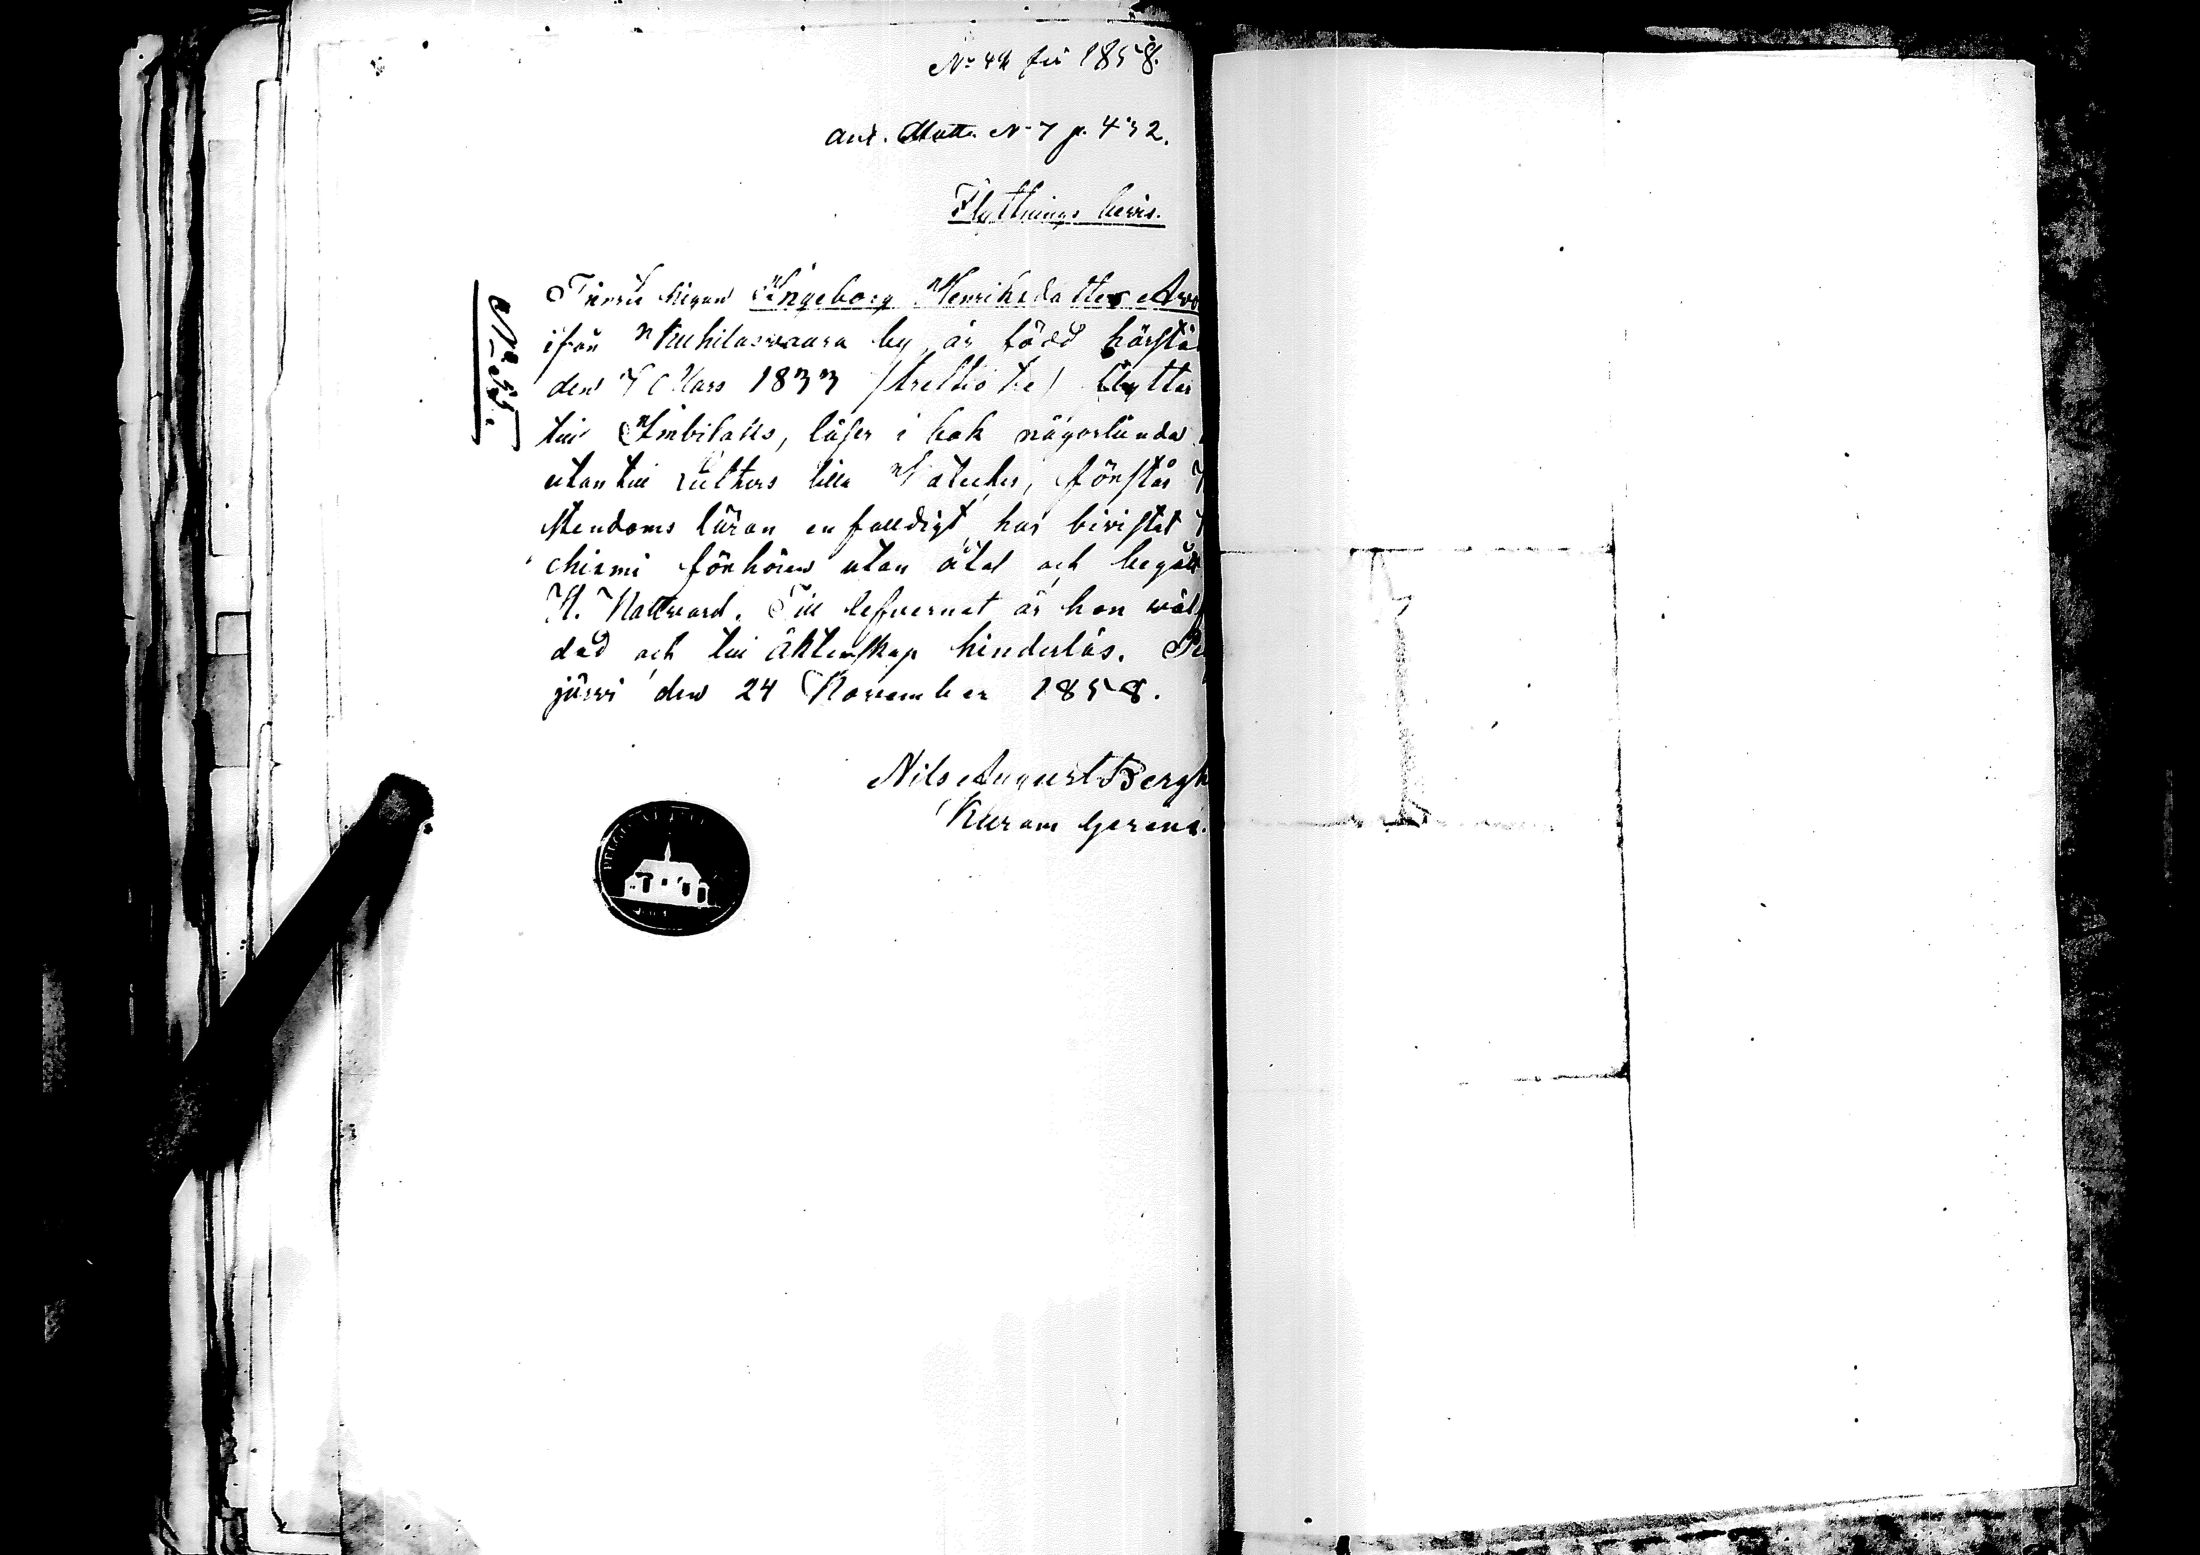 No 44 för 1858.
ant. Mutt. N 7 p. 432.
Flyttnings bevis.
No 35.
Inhyses pigan Ingeborg Henriksdatter Arv
ifrån Kuhilasvaara by, är född härstä
den 7 Mars 1833 (trettio tre) flyttar
till Kimbilaks, läser i bok någorlunda
utantill Luthers lilla Kateches, förstår
stendoms läran enfalldigt, har bivistat
chismi förhören utan åtal och begått
H. Nattvard. Till lefvernet är hon väl
dad och till äktenskap hinderlös. Pe
järvi den 24 November 1858.
Nils August Bergh
Kuram gerens.